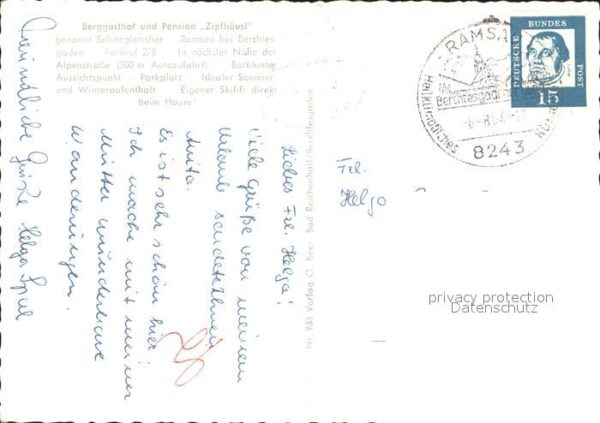 Berggasthof und Pension „Zipfhäusl"
genannt Schnegletscher - Ramsau bei Berchtes-
gaden - Fernruf 278 - In nächster Nähe der
Alpenstraße (500 m Autozufahrt) - Berühmter
Aussichtspunkt - Parkplatz - Idealer Sommer
und Winteraufenthalt - Eigener Skilift direkt
beim Hause!
Liebes Frl. Helga!
Viele Grüße von meinem
Urlaub sendet Ihnen
Anita.
Es ist sehr schön hier.
Ich mache mit meiner
Mutter wunderbare
Wanderungen.
Freundliche Grüße Helga
Nr. 933 Verlag
Bad Reichenhall
RAMSAU
Berchtesgaden
8243
DEUTSCHE BUNDESPOST
15
Frl.
Helga
privacy protection
Datenschutz